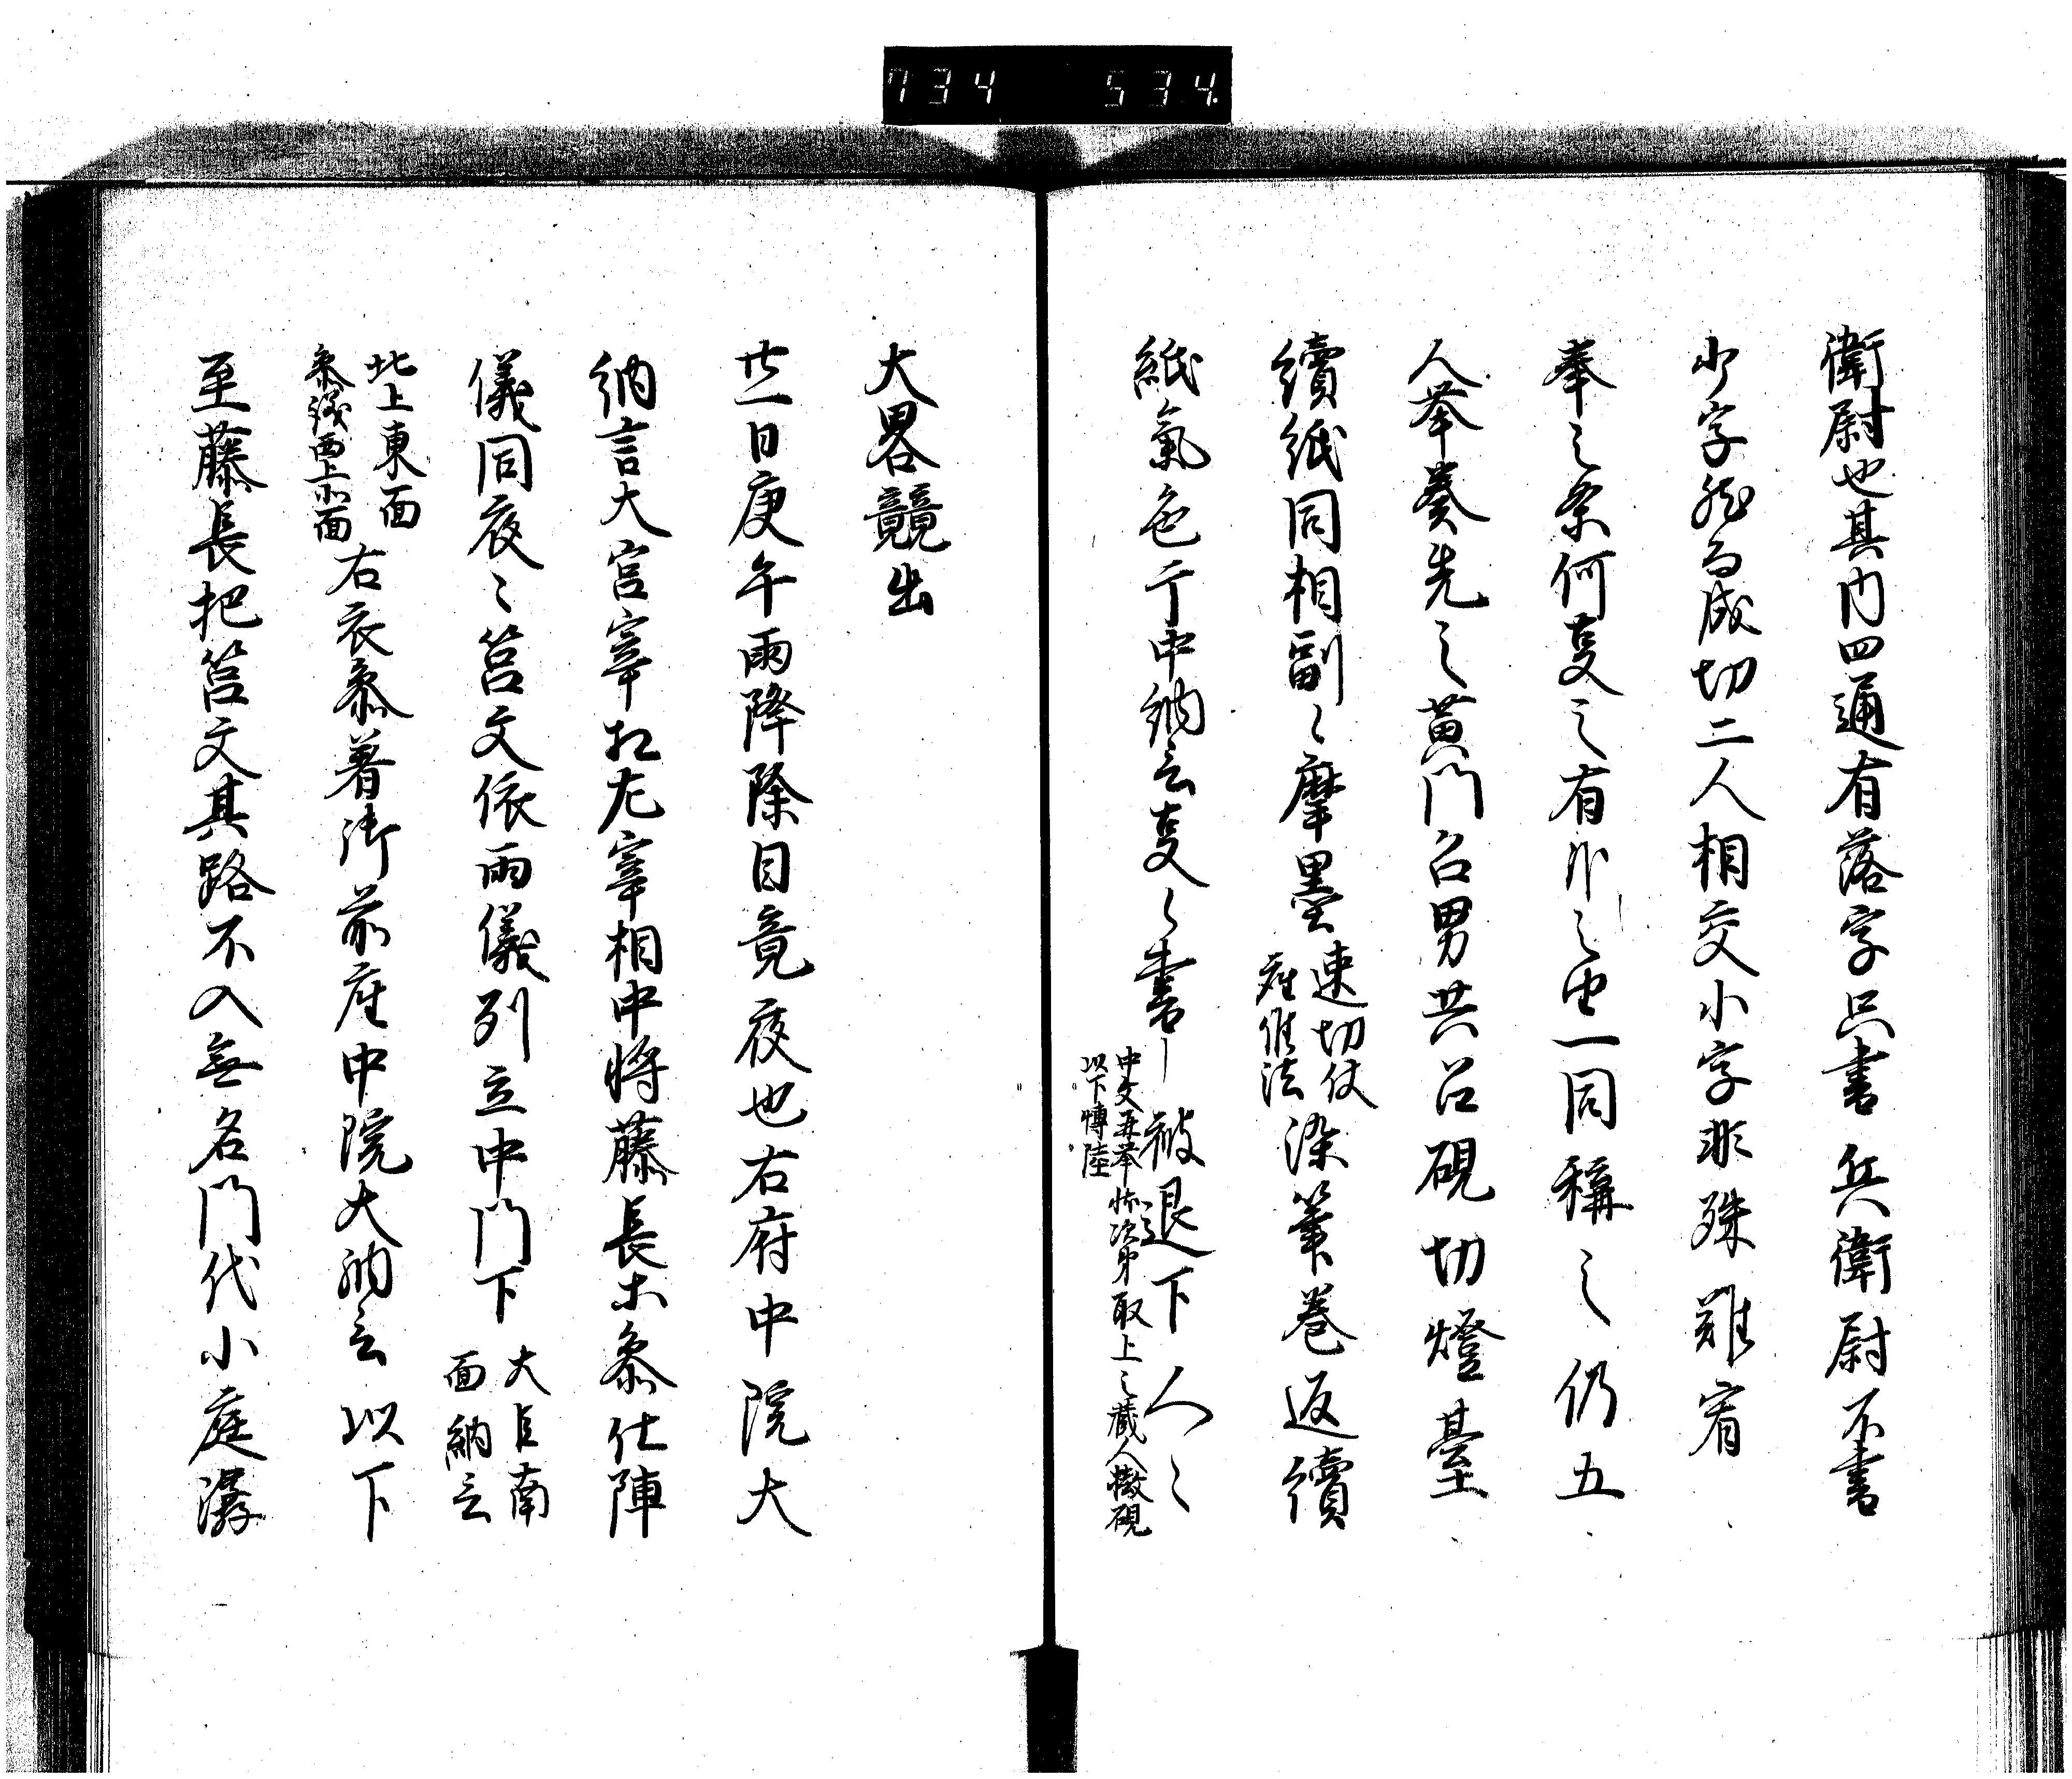 734 534
衛尉也其内四通有落字只書兵衛尉不書
少字然而成切二人相交小字非殊難宥
奉之条何事之有哉之由一同称之仍五
人挙奏先之黄門召男共召硯切燈臺
續紙同相副々摩墨
速切仗
染筆巻返續
紙氣色于中納言事々書
被退下人々
以下博陸
次第取上之蔵人撤硯
大畧競出
廿一日庚午雨降除目竟夜也右府中院大
納言大宮宰相左宰相中将藤長朱参仕陣
儀同夜々筥文依雨儀列立中門下
大臣南
面納言
北上東面
参議西上北面
右衣参着御前座中院大納言以下
至藤長把筥文其路不入無名門代小庭潺